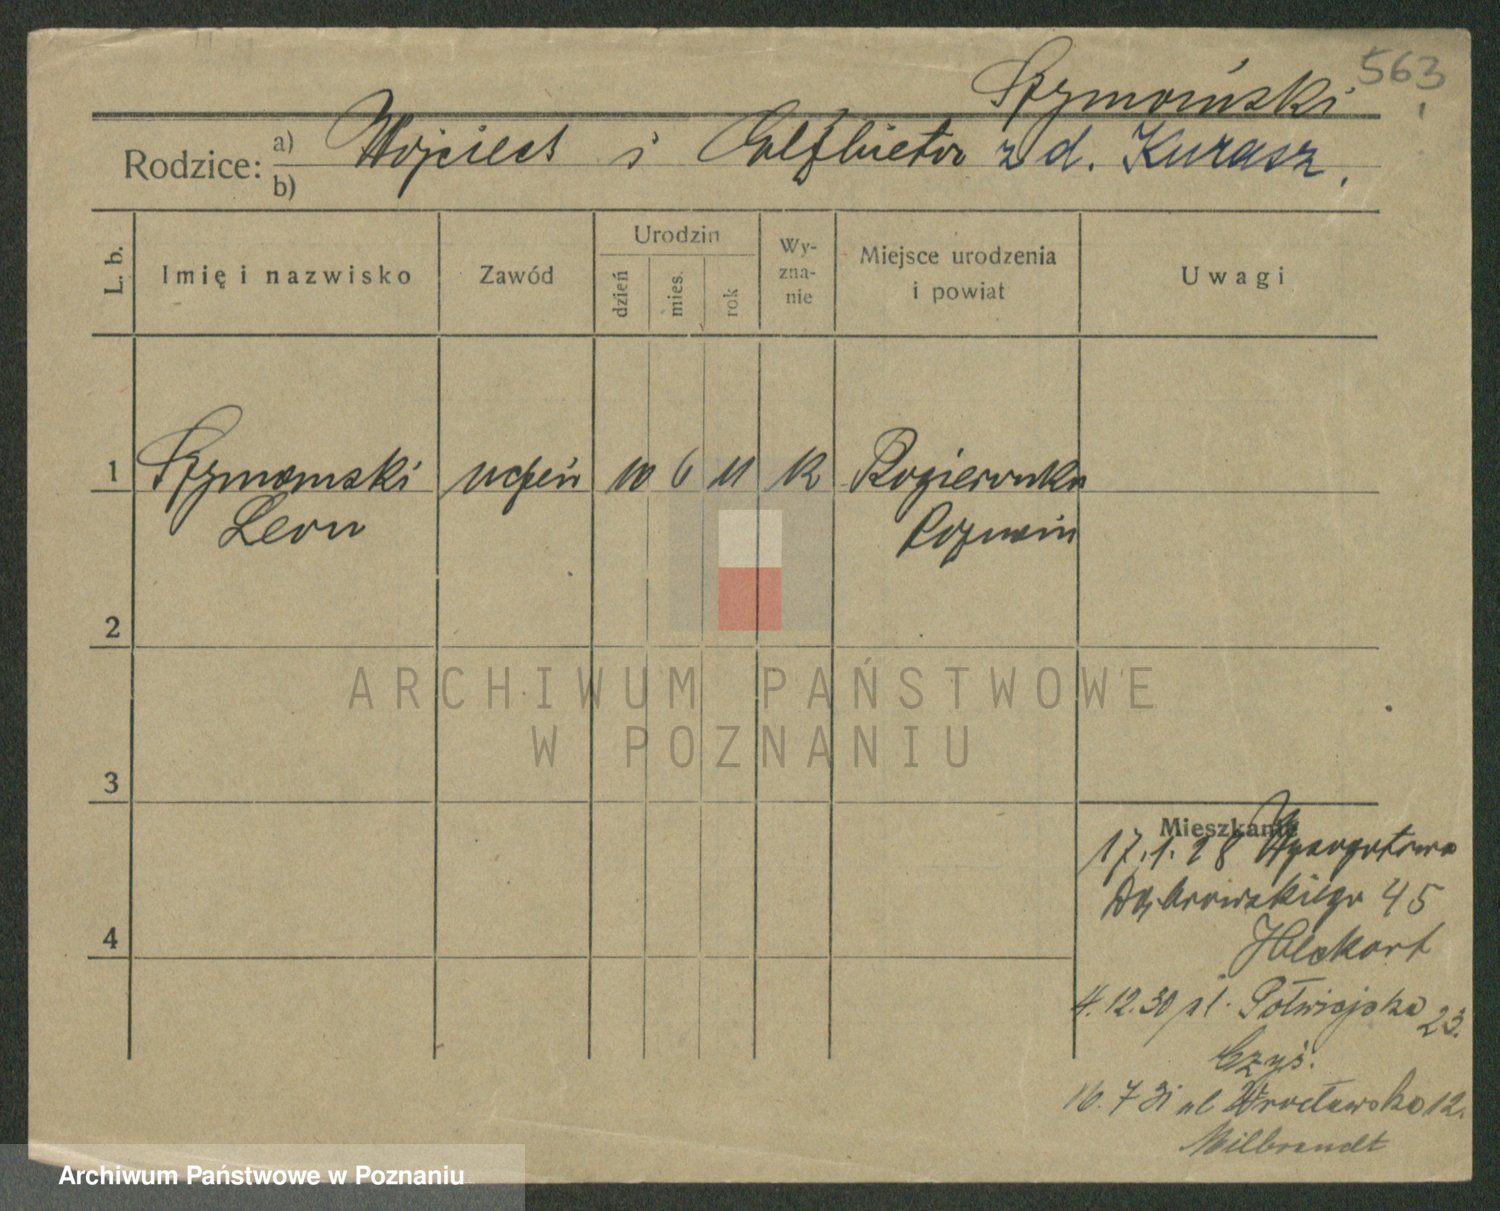 563
Szymański
Rodzice: a) Wojciech i Elżbieta z d. Kurasz,
b)
L. b. Imię i nazwisko Zawód Urodzin dzień mies. rok Wy-zna-nie Miejsce urodzenia i powiat Uwagi
1 Szymański uczeń 10 6 11 k
Leon Poznań
2
3
4
Mieszkanie
17.1.28
Dąbrowskiego 45
4.12.30 ul. Półwiejska 23.
Czyś.
16.7 31 ul Wrocławska 12.
Milbrandt
ARCHIWUM PAŃSTWOWE
W POZNANIU
Archiwum Państwowe w Poznaniu